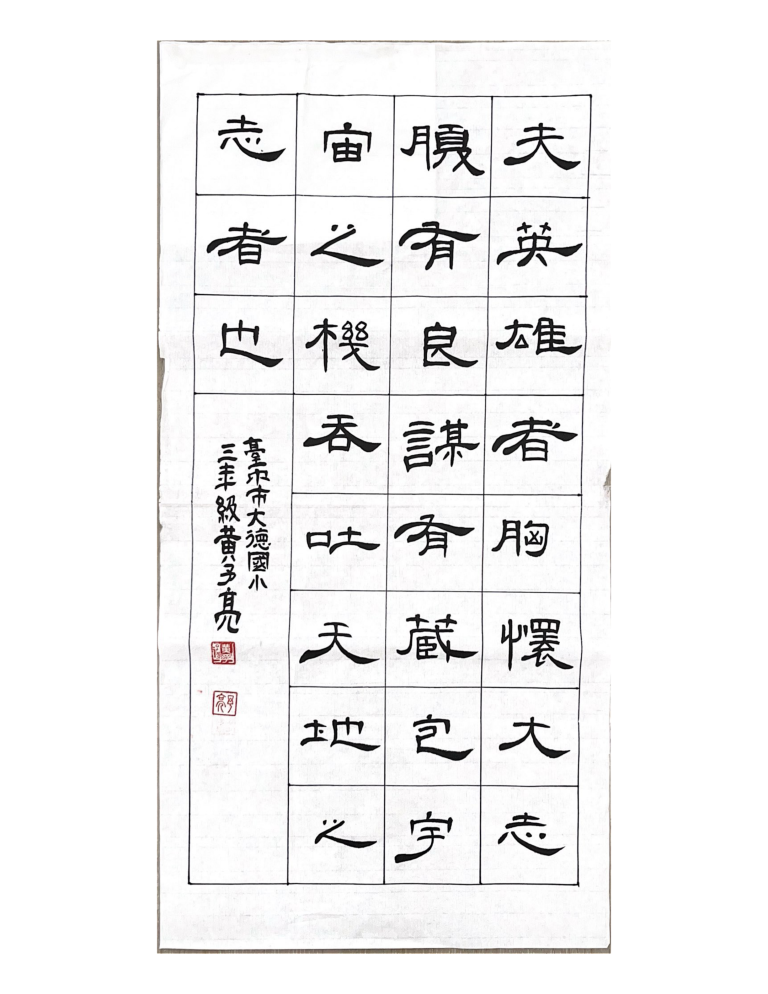 夫英雄者胸懷大志
腹有良謀有藏包宇
宙之機吞吐天地之
志者也
臺中市大德國小
三年級黃子亮